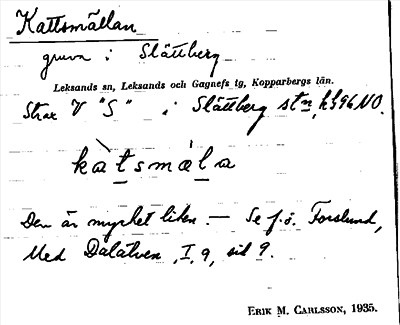 Kattsmällan
gruva i Slättberg
Leksands sn, Leksands och Gagnefs tg, Kopparbergs län.
Strax V "S" i Slättberg stn, hb96NO.
kàtsmæ̀la
Den är mycket liten. — Se f.ö. Forslund,
Med Dalälven, I, 9, sid 9.
ERIK M. CARLSSON, 1935.